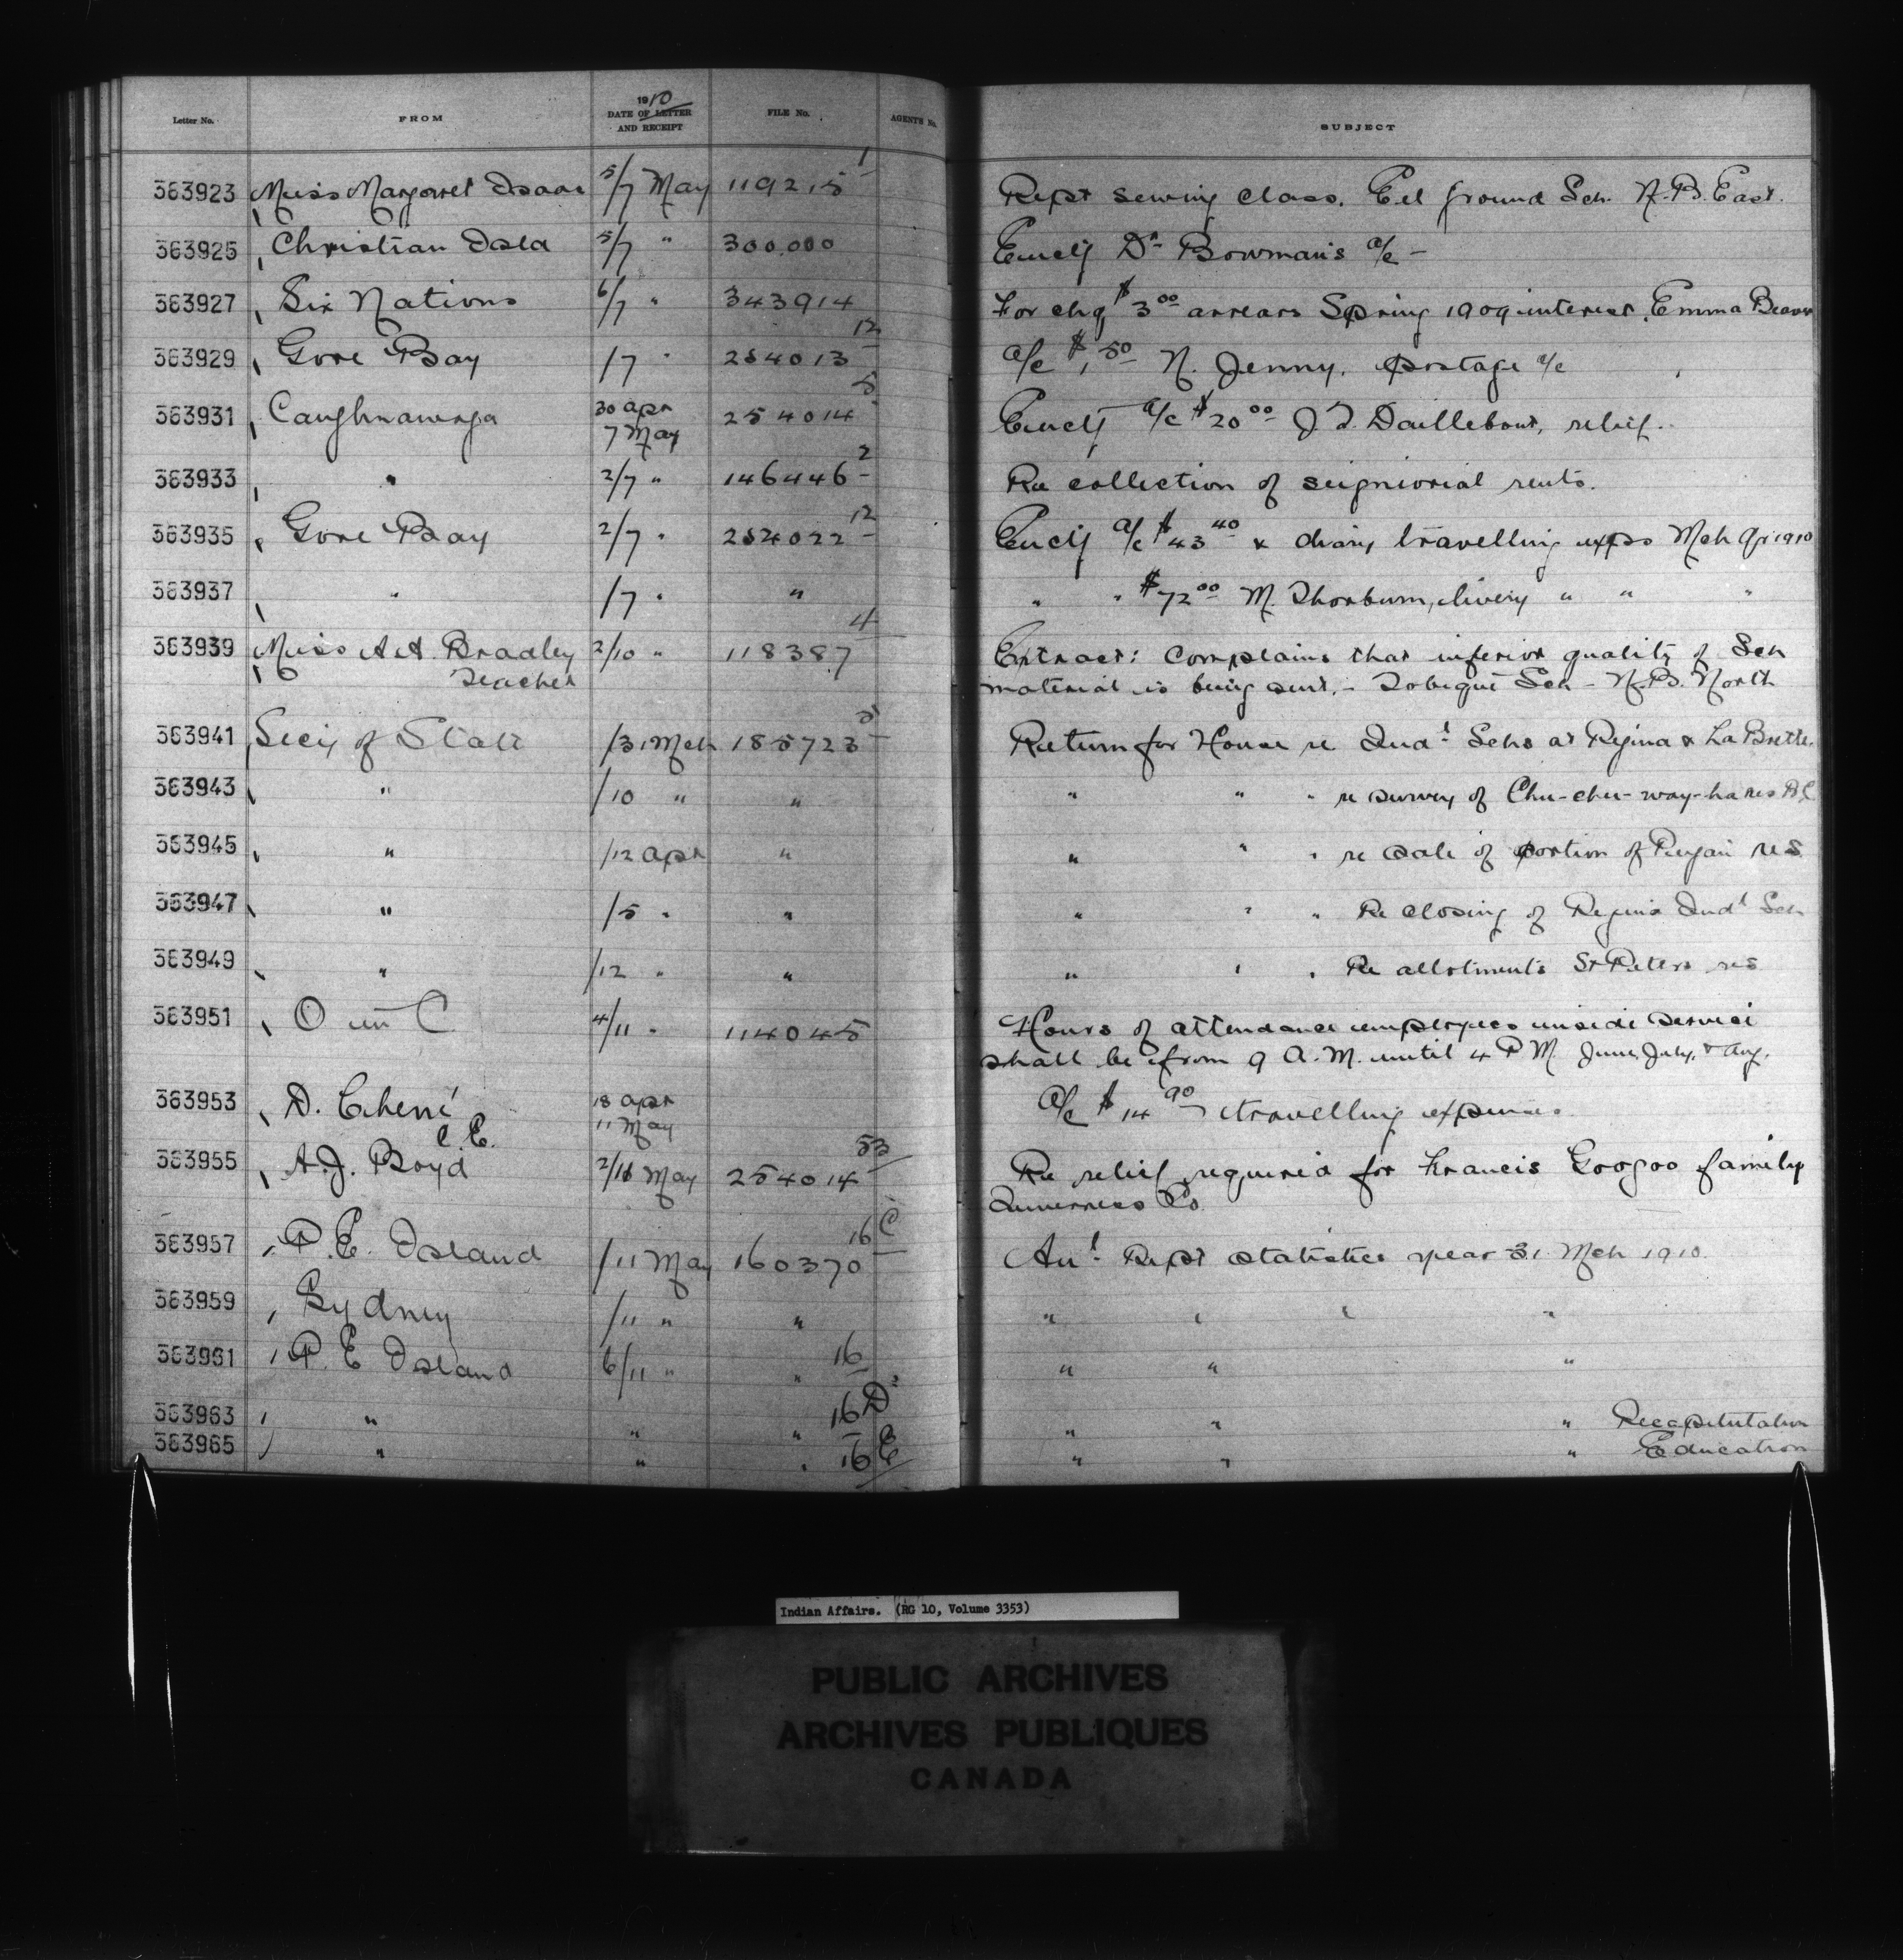 Letter No. FROM 1910 DATE OF LETTER AND RECEIPT FILE No. AGENTS No. SUBJECT
363923 Miss Margaret Isaac 5/7 May 119215-1 Rept sewing class. Eel ground Sch. N.B. East.
363925 Christian Isld 5/7 " 300.000 Encl'g Dr Bowman's a/c -
363927 Six Nations 6/7 " 343914 For chq $3.00 arrears Spring 1909 interest, Emma Beaver
363929 Gore Bay /7 " 254013-12 a/c $1.50 N. Jenny, postage a/c
363931 Caughnawaga 30 Apr 7 May 254014-5 Encl'g a/c $20.00 J.T. Daillebout, relief.
363933 " 2/7 " 146446-2 Re collection of seigniorial rents.
363935 Gore Bay 2/7 " 254022-12 Encl'g a/c $43.40 & diary travelling exps Mch Ap 1910
363937 " /7 " " " " $72.00 M. Thorburn, livery " " "
363939 Miss A.A. Bradley 2/10 " 118387-4 Extract: Complains that inferior quality of Sch
Teacher material is being sent. - Tobique Sch - N.B. North
363941 Sec'y of State /31 Mch 185723-5 Return for House re Ind'l Schs at Regina & La Brette.
363943 " /10 " " " " " re survey of Chu-chu-way-ha res B.C.
363945 " /12 Apr " " " " re sale of portion of Piegan res
363947 " /5 " " " " " Re closing of Regina Ind'l Sch
363949 " /12 " " " " " Re allotments St Peters res
363951 O in C 4/11 " 114045 Hours of attendance employees inside service
shall be from 9 A.M. until 4 P.M. June, July, & Aug.
363953 D. Chené C.E. 18 Apr 11 May a/c $14.90 travelling expenses
363955 A.J. Boyd 2/16 May 254014-53 Re relief required for Francis Googoo family
Inverness Co.
363957 P.E. Island /11 May 160370-16 C An'l Rept statistics year 31 Mch 1910.
363959 Sydney /11 " " " " " "
363961 P.E Island 6/11 " " 16 " " "
363963 " " " 16 D " " " Recapitulation
363965 " " " 16 E " " " Education
Indian Affairs. (RG 10, Volume 3353)
PUBLIC ARCHIVES
ARCHIVES PUBLIQUES
CANADA